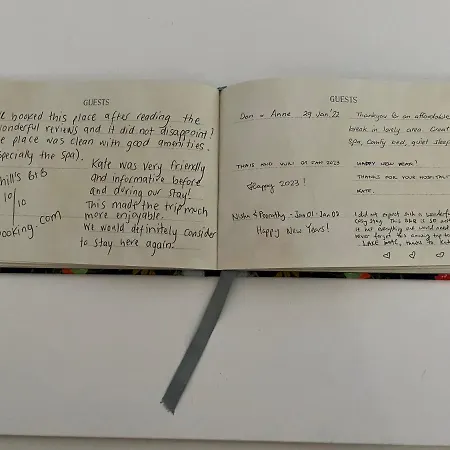 GUESTS
booked this place after reading the
wonderful reviews and it did not disappoint!
e place was clean with good amenities.
specially the spa).
Kate was very friendly
and informative before
and during our stay!
This made the trip much
more enjoyable.
We would definitely consider
to stay here again.
hill's B&B
10/10
booking.com
GUESTS
Don & Anne 29 Jan '22
Thankyou for an affordable
break in lovely area. Great
Spa, comfy bed, quiet sleep.
THAIS AND YURI 03 JAN 2023
Happy 2023!
HAPPY NEW YEAR!
THANKS FOR YOUR HOSPITALITY
KATE.
Jan 01 - Jan 03
Happy New Years!
I did not expect such a wonderful
stay. This B&B is so
everything one would need
never forget this amazing trip to
thanks to Kate